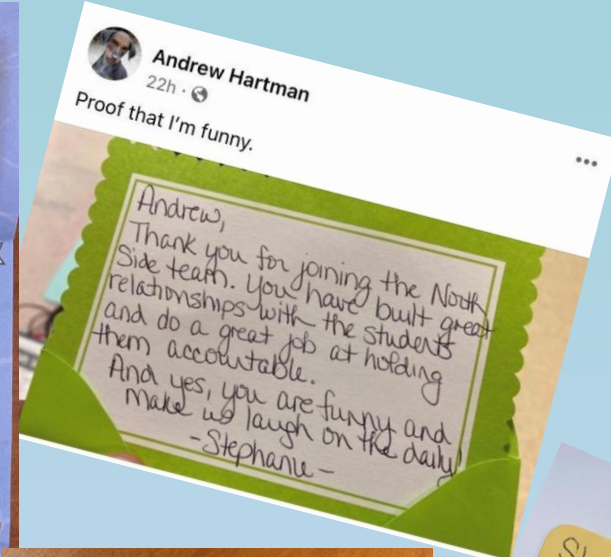 Andrew Hartman
22h ·
Proof that I'm funny.
Andrew,
Thank you for joining the North
Side team. You have built great
relationships with the students
and do a great job at holding
them accountable.
And yes, you are funny and
make us laugh on the daily!
-Stephanie-